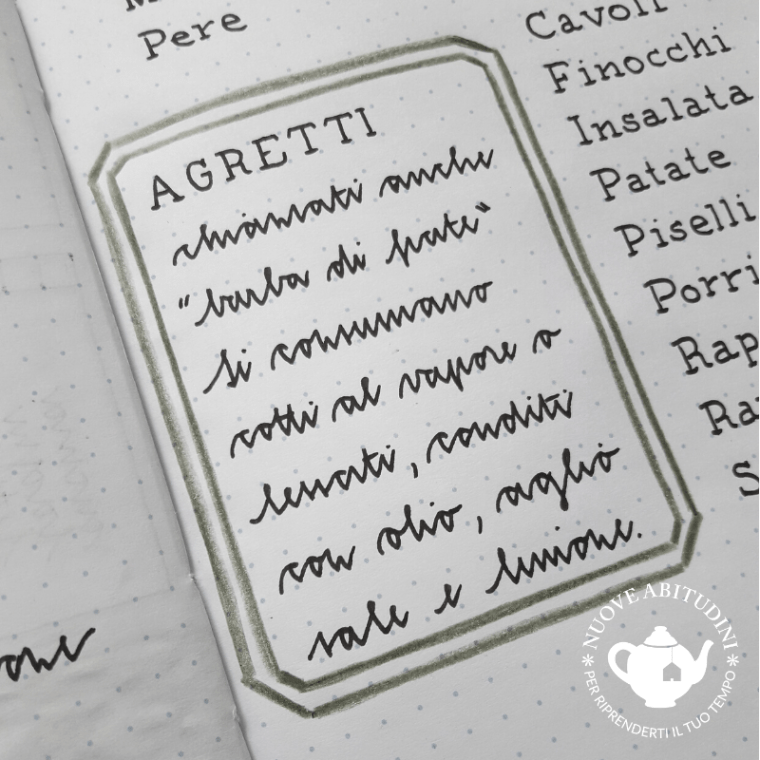 Pere
AGRETTI
chiamati anche
"barba di frate"
si consumano
cotti al vapore o
lessati, conditi
con olio, aglio
sale e limone.
Cavoli
Finocchi
Insalata
Patate
Piselli
Porri
Rap
Ra
S
NUOVE ABITUDINI
PER RIPRENDERTI IL TUO TEMPO